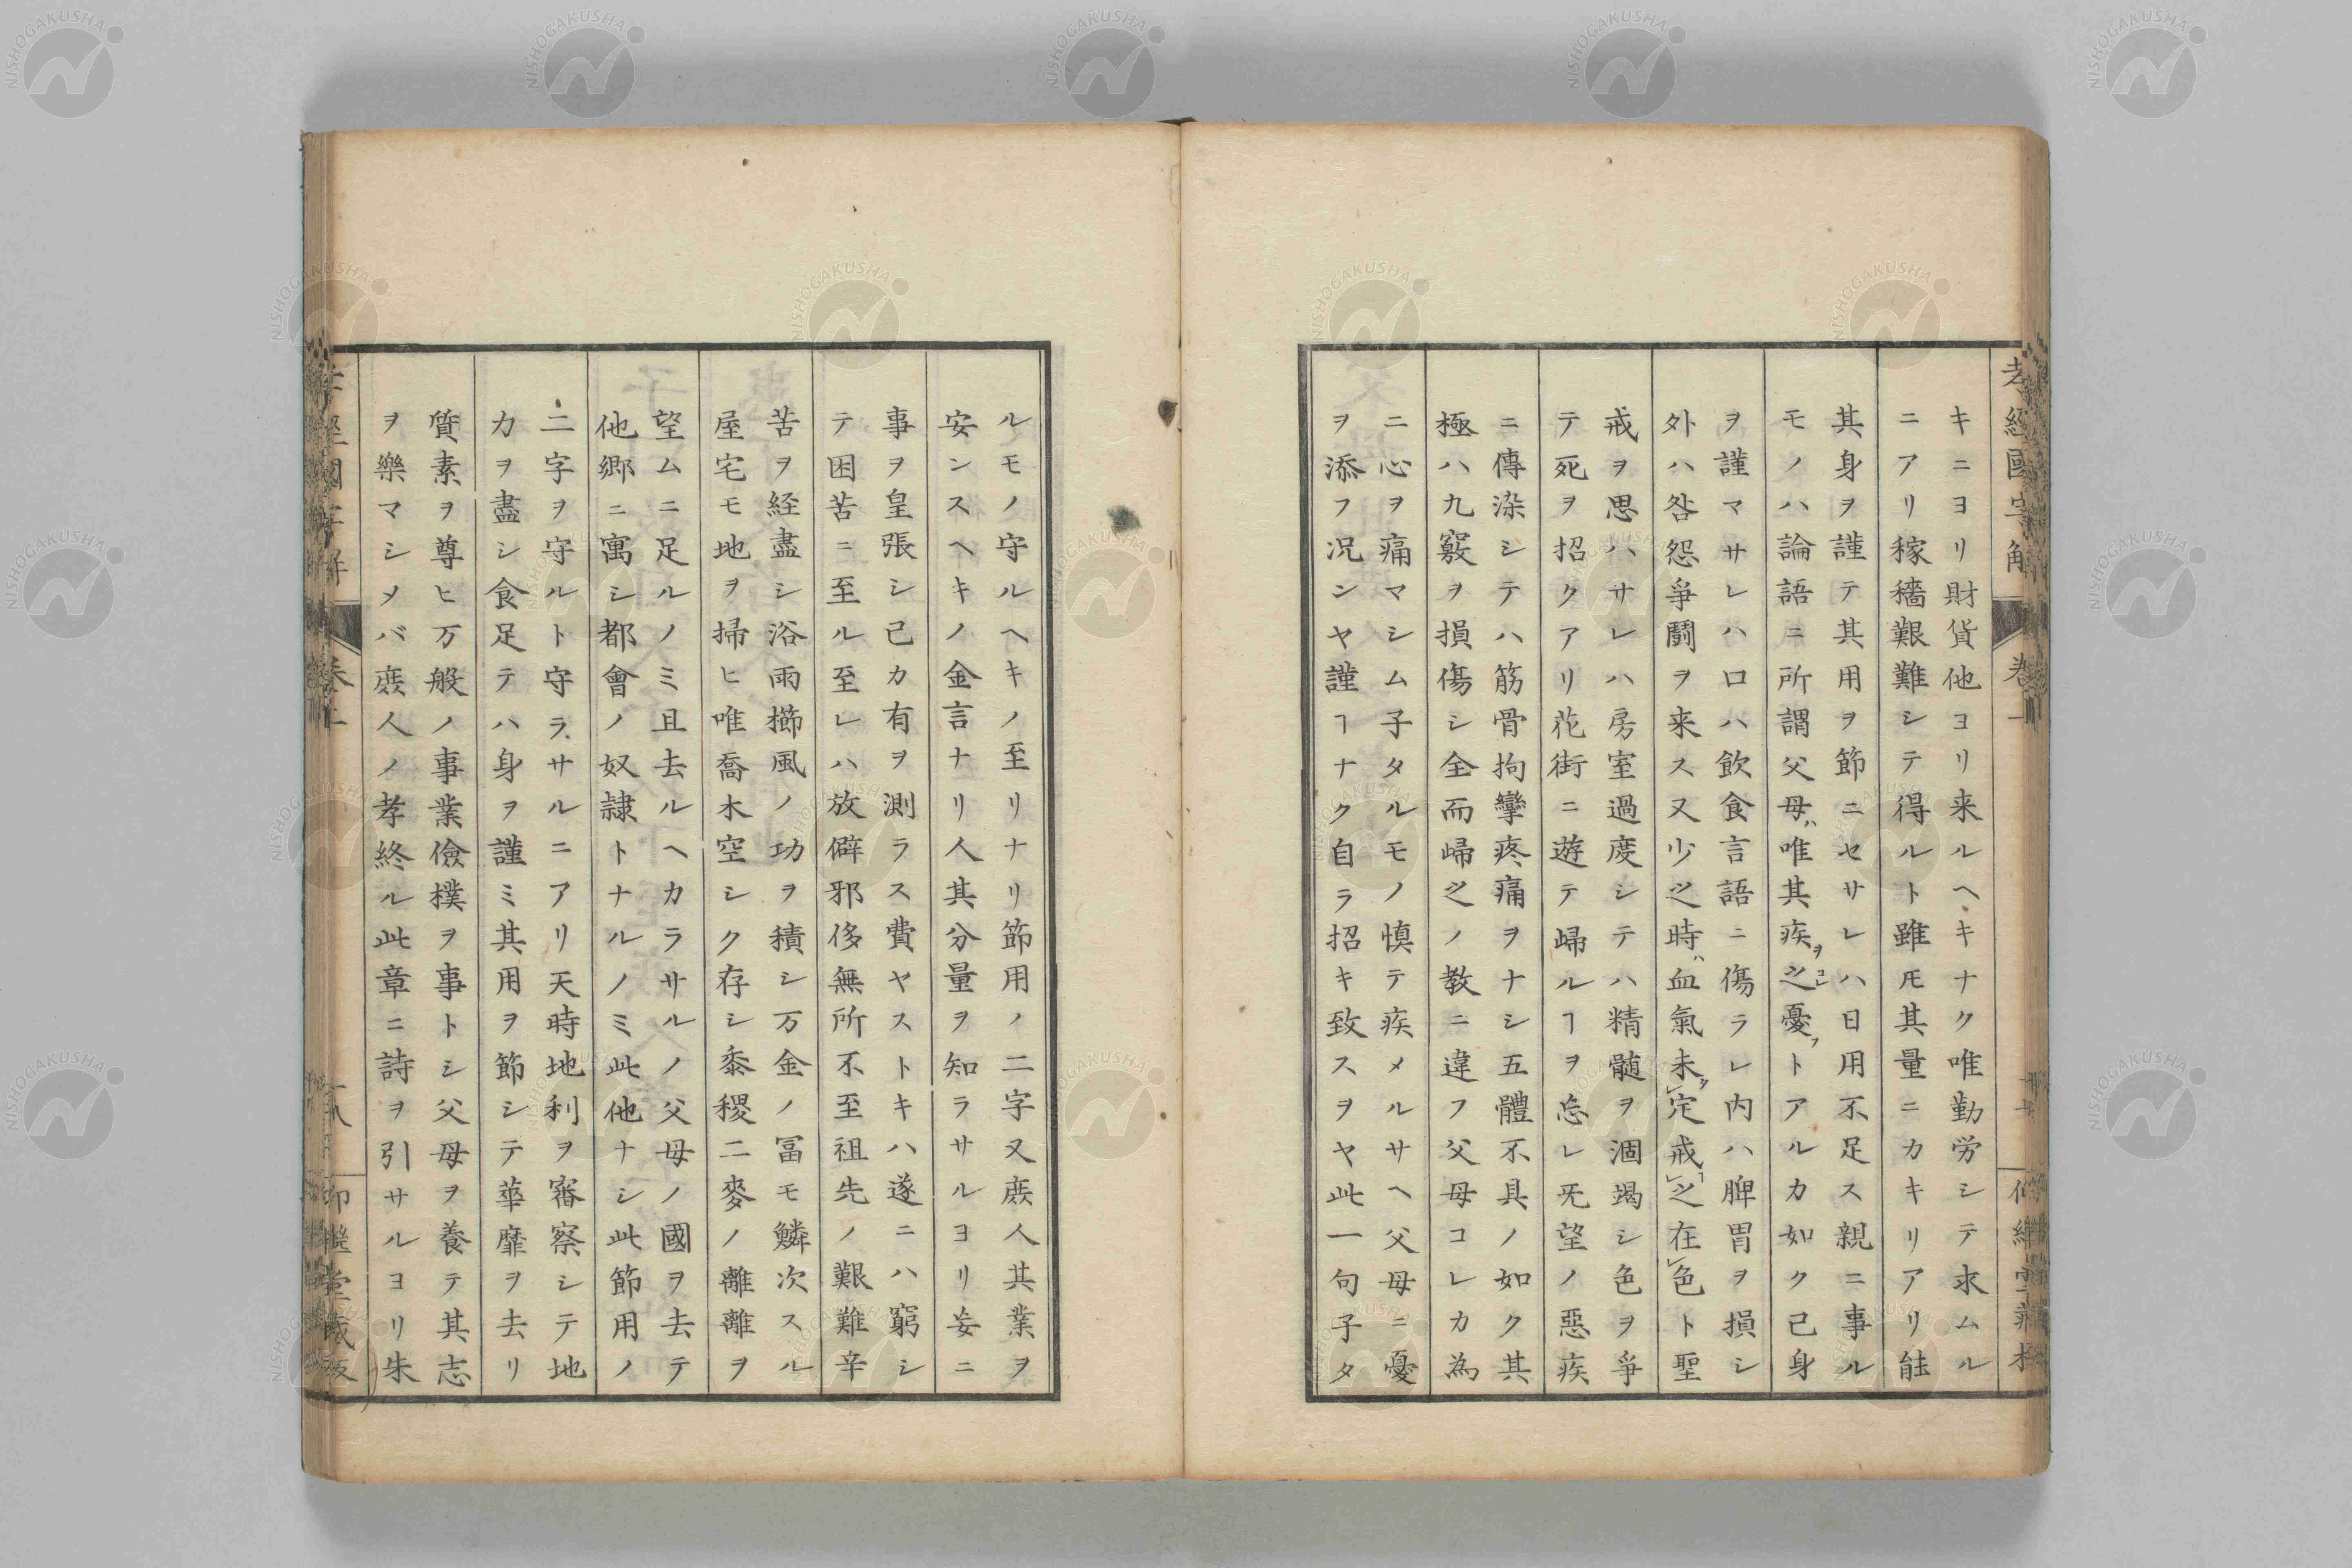 キニヨリ財貨他ヨリ来ルヘキナク唯勤労シテ求ムル
ニアリ稼穡艱難シテ得ルト雖𪜈其量ニカキリアリ能
其身ヲ謹テ其用ヲ節ニセサレハ日用不足ス親ニ事ル
モノハ論語ニ所謂父母ハ唯其疾ヲ之コレ憂フトアルカ如ク己身
ヲ謹マサレハ口ハ飲食言語ニ傷ラレ内ハ脾胃ヲ損シ
外ハ咎怨爭鬪ヲ来ス又少之時ハ血氣未タ㆑定戒ム㆑之在㆑色ト聖
戒ヲ思ハサレハ房室過度シテハ精髄ヲ涸竭シ色ヲ爭
テ死ヲ招クアリ花街ニ遊テ歸ルヿヲ忘レ旡望ノ惡疾
ニ傳染シテハ筋骨拘攣疼痛ヲナシ五體不具ノ如ク其
極ハ九竅ヲ損傷シ全而歸之ノ教ニ違フ父母コレカ為
ニ心ヲ痛マシム子タルモノ慎テ疾メルサヘ父母ニ憂
ヲ添フ况ンヤ謹ヿナク自ラ招キ致スヲヤ此一句子タ
ルモノ守ルヘキノ至リナリ節用ノ二字又庶人其業ヲ
安ンスヘキノ金言ナリ人其分量ヲ知ラサルヨリ妄ニ
事ヲ皇張シ己カ有ヲ測ラス費ヤストキハ遂ニハ窮シ
テ困苦ニ至ル至レハ放僻邪侈無所不至祖先ノ艱難辛
苦ヲ経盡シ浴雨櫛風ノ功ヲ積シ万金ノ冨モ鱗次スル
屋宅モ地ヲ掃ヒ唯喬木空シク存シ黍稷二麥ノ離離ヲ
望ムニ足ルノミ且去ルヘカラサルノ父母ノ國ヲ去テ
他郷ニ寓シ都會ノ奴隷トナルノミ此他ナシ此節用ノ
二字ヲ守ルト守ラサルニアリ天時地利ヲ審察シテ地
力ヲ盡シ食足テハ身ヲ謹ミ其用ヲ節シテ華靡ヲ去リ
質素ヲ尊ヒ万般ノ事業儉樸ヲ事トシ父母ヲ養テ其志
ヲ樂マシメバ庶人ノ孝終ル此章ニ詩ヲ引サルヨリ朱